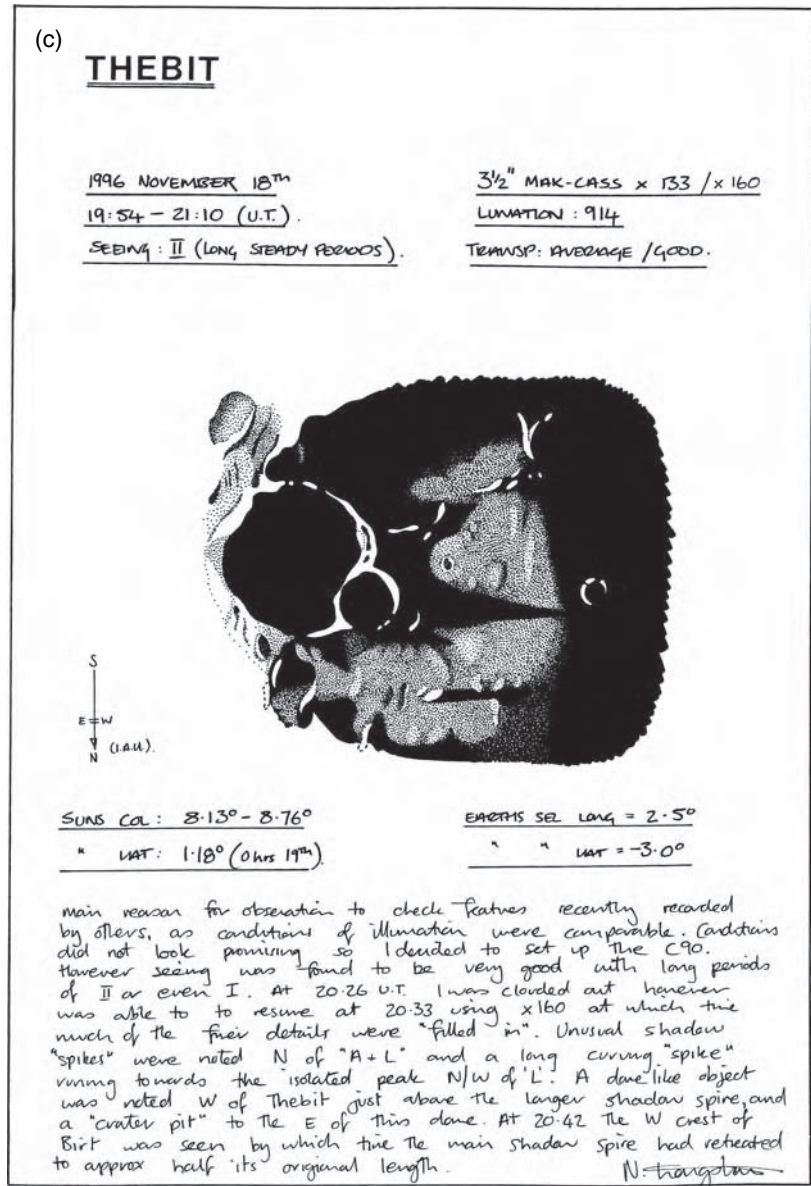 (c)
THEBIT
1996 NOVEMBER 18TH
19:54 – 21:10 (U.T.).
SEEING: II (LONG STEADY PERIODS).
3½" MAK-CASS x 133 / x 160
LUNATION : 914
TRANSP: AVERAGE / GOOD.
S
E W
N (I.A.U.).
SUNS COL: 8·13° – 8·76°
" LAT: 1·18° (0hrs 19th).
EARTHS SEL LONG = 2·5°
" " LAT = –3·0°
main reason for obseration to check features recently recorded
by others, as conditions of illumation were comparable. Conditions
did not look promising so I decided to set up the C90.
However seeing was found to be very good with long periods
of II or even I. At 20·26 U.T. I was clouded out however
was able to to resume at 20·33 using x160 at which time
much of the finer details were "filled in". Unusual shadow
"spikes" were noted N of "A + L" and a long curving "spike"
running towards the isolated peak N/W of 'L'. A dome like object
was noted W of Thebit just above the larger shadow spire, and
a "crater pit" to the E of this dome. At 20·42 the W crest of
Birt was seen by which time the main shadow spire had retreated
to approx half its origional length.
N.